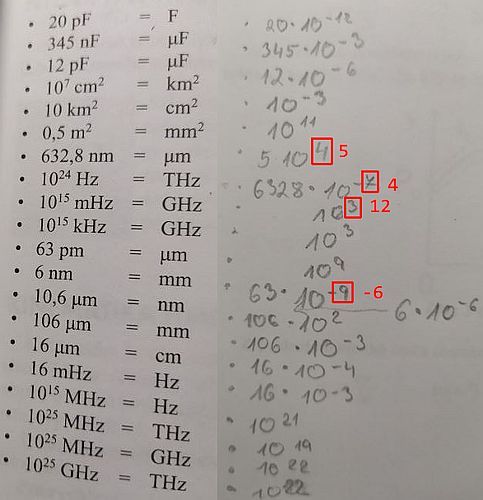 • 20 pF = F
• 345 nF = μF
• 12 pF = μF
• 10⁷ cm² = km²
• 10 km² = cm²
• 0,5 m² = mm²
• 632,8 nm = μm
• 10²⁴ Hz = THz
• 10¹⁵ mHz = GHz
• 10¹⁵ kHz = GHz
• 63 pm = μm
• 6 nm = mm
• 10,6 μm = nm
• 106 μm = mm
• 16 μm = cm
• 16 mHz = Hz
• 10¹⁵ MHz = Hz
• 10²⁵ MHz = THz
• 10²⁵ MHz = GHz
• 10²⁵ GHz = THz
• 20·10⁻¹²
• 345·10⁻³
• 12·10⁻⁶
• 10⁻³
• 10¹¹
• 5 10⁴ 5
• 6328·10⁻⁷ 4
10³ 12
• 10³
10⁹
• 63·10⁻⁹ -6
6·10⁻⁶
• 106·10²
• 106·10⁻³
• 16·10⁻⁴
• 16·10⁻³
• 10²¹
• 10¹⁹
• 10²²
• 10²²